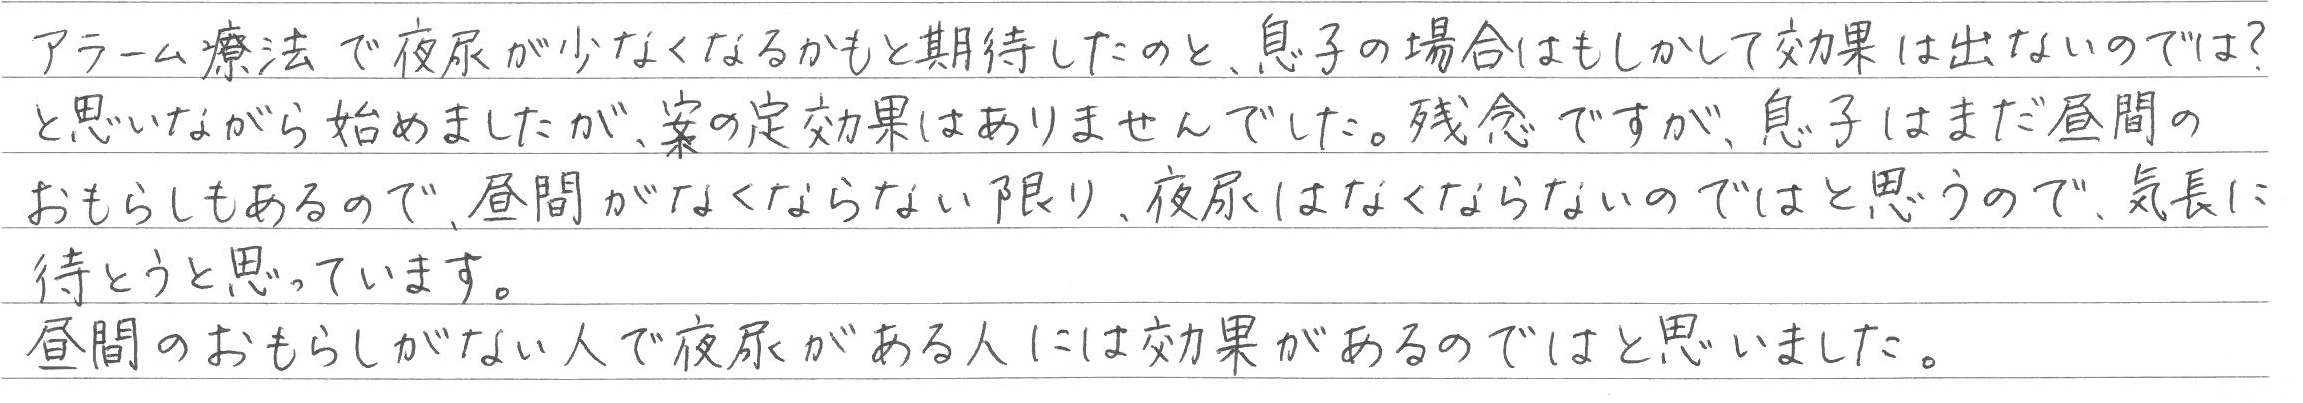 アラーム療法で夜尿が少なくなるかもと期待したのと、息子の場合はもしかして効果は出ないのでは?
と思いながら始めましたが、案の定効果はありませんでした。残念ですが、息子はまだ昼間の
おもらしもあるので、昼間がなくならない限り、夜尿はなくならないのではと思うので、気長に
待とうと思っています。
昼間のおもらしがない人で夜尿がある人には効果があるのではと思いました。